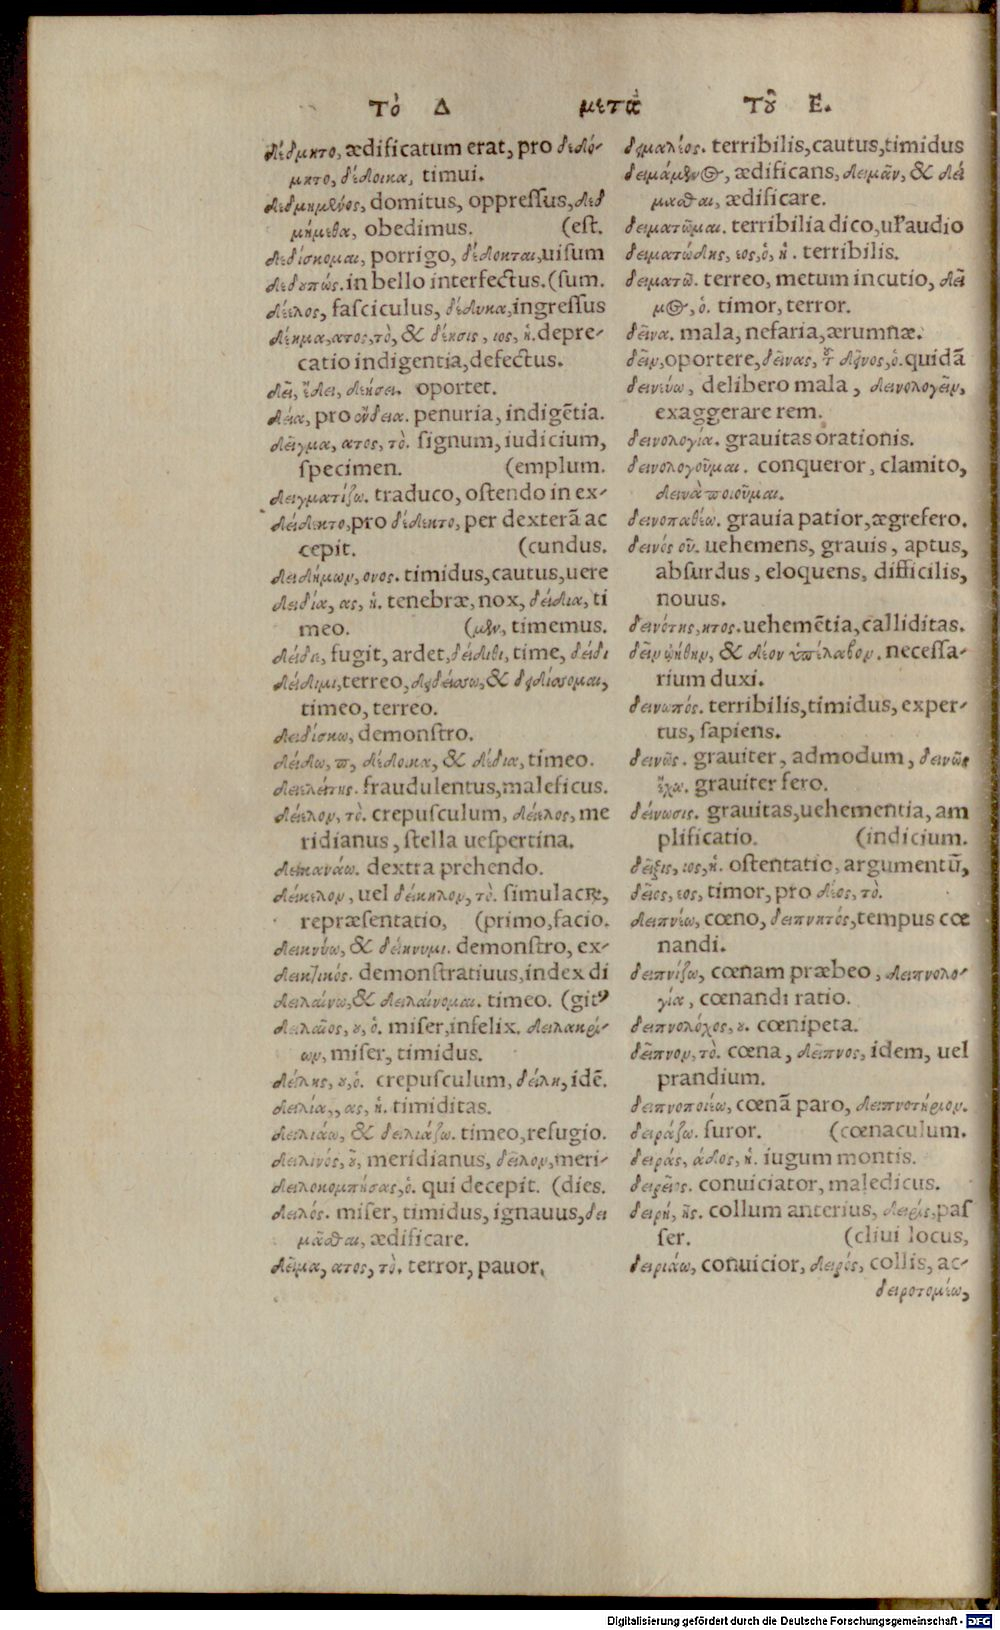 Τὸ Δ μετὰ Τοῦ Ε.
δέδμητο, ædificatum erat, pro δεδό-
μητο, δέδοικα, timui.
δεδμημένος, domitus, oppressus, δεδ
μήμεθα, obedimus. (est.
δεδίσκομαι, porrigo, δέδοκται, uisum
δεδουπώς. in bello interfectus. (sum.
δέελος, fasciculus, δέδυκα, ingressus
δέημα, ατος, τὸ, & δέησις, ιος, ἡ. depre-
catio indigentia, defectus.
δεῖ, ἔδει, δεήσει. oportet.
δεία, pro ἔνδεια. penuria, indigētia.
δεῖγμα, ατος, τὸ. signum, iudicium,
specimen. (emplum.
δειγματίζω. traduco, ostendo in ex-
δείδεκτο, pro δέδεκτο, per dexterā ac
cepit. (cundus.
δειδήμων, ονος. timidus, cautus, uere
δειδία, ας, ἡ. tenebræ, nox, δείδια, ti
meo. (μεν, timemus.
δείδε, fugit, ardet, δείδιθι, time, δείδι
δείδιμι, terreo, δειδείσω, & δειδίσομαι,
timeo, terreo.
δειδίσκω, demonstro.
δείδω, π, δέδοικα, & δέδια, timeo.
δειελέτης. fraudulentus, maleficus.
δείελον, τὸ. crepusculum, δείελος, me
ridianus, stella uespertina.
δεικανάω. dextra prehendo.
δείκελον, uel δείκηλον, τὸ. simulacre,
repræsentatio, (primo, facio.
δεικνύω, & δείκνυμι. demonstro, ex-
δεικτικός. demonstratiuus, index di
δειλαίνω, & δειλαίνομαι. timeo. (gitꝰ
δειλαῖος, ου, ὁ. miser, infelix. δειλακρί-
ων, miser, timidus.
δείλης, ου, ὁ. crepusculum, δείλη, idē.
δειλία,, ας, ἡ. timiditas.
δειλιάω, & δειλιάζω. timeo, refugio.
δειλινός, οῦ, meridianus, δεῖλον, meri-
δειλοκομπήσας, ὁ. qui decepit. (dies.
δειλός. miser, timidus, ignauus, δει
μᾶσθαι, ædificare.
δεῖμα, ατος, τὸ. terror, pauor,
δειμαλέος. terribilis, cautus, timidus
δειμάμενος, ædificans, δειμᾶν, & δεί
μασθαι, ædificare.
δειματῶμαι. terribilia dico, uł audio
δειματώδης, εος, ὁ, ἡ. terribilis.
δειματῶ. terreo, metum incutio, δεῖ
μος, ὁ. timor, terror.
δεῖνα. mala, nefaria, ærumnæ.
δεῖν, oportere, δεῖνας, τοῦ δεῖνος, ὁ. quidā
δεινεύω, delibero mala, δεινολογεῖν,
exaggerare rem.
δεινολογία. grauitas orationis.
δεινολογοῦμαι. conqueror, clamito,
δεινὰ ποιοῦμαι.
δεινοπαθέω. grauia patior, ægrefero.
δεινός οῦ. uehemens, grauis, aptus,
absurdus, eloquens, difficilis,
nouus.
δεινότης, ητος. uehemētia, calliditas.
δεῖν ᾠήθην, & δέον ὑπέλαβον. necessa-
rium duxi.
δεινωπός. terribilis, timidus, exper-
tus, sapiens.
δεινῶς. grauiter, admodum, δεινῶς
ἔχω. grauiter fero.
δείνωσις. grauitas, uehementia, am
plificatio. (indicium.
δεῖξις, ιος, ἡ. ostentatio, argumentū,
δεῖος, εος, timor, pro δέος, τὸ.
δειπνέω, cœno, δειπνητός, tempus cœ
nandi.
δειπνίζω, cœnam præbeo, δειπνολο-
γία, cœnandi ratio.
δειπνολόχος, ου. cœnipeta.
δεῖπνον, τὸ. cœna, δεῖπνος, idem, uel
prandium.
δειπνοποιέω, cœnā paro, δειπνοτήριον.
δειράζω. furor. (cœnaculum.
δειράς, άδος, ἡ. iugum montis.
δειρεῖος. conuiciator, maledicus.
δειρή, ῆς. collum anterius, δειρίς, pas
ser. (cliui locus,
δειριάω, conuicior, δειρός, collis, ac-
δειροτομέω,
Digitalisierung gefördert durch die Deutsche Forschungsgemeinschaft - DFG